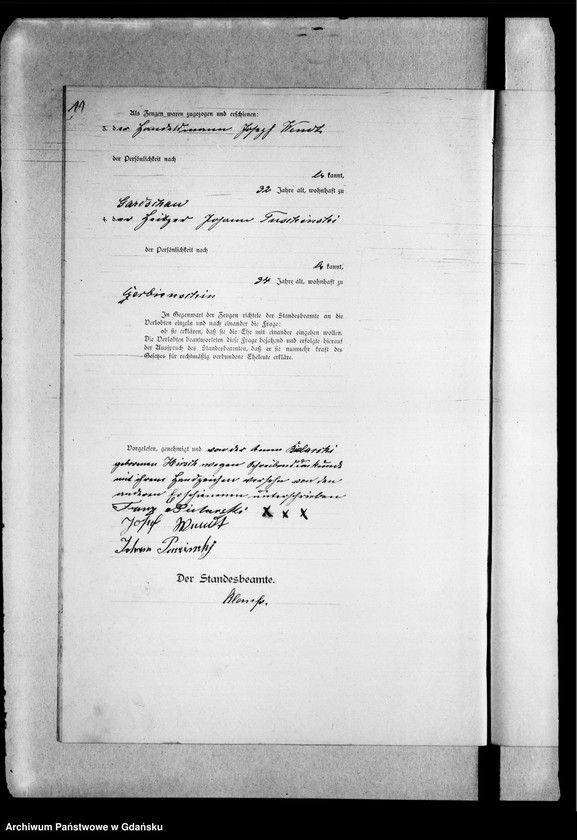 Als Zeugen waren zugezogen und erschienen:
3. der Handelsmann Josef Wendt
der Persönlichkeit nach
be kannt,
32 Jahre alt, wohnhaft zu
Gardschau
4. der Heitzer Johann
der Persönlichkeit nach
be kannt,
34 Jahre alt, wohnhaft zu
In Gegenwart der Zeugen richtete der Standesbeamte an die
Verlobten einzeln und nach einander die Frage:
ob sie erklären, daß sie die Ehe mit einander eingehen wollen.
Die Verlobten beantworteten diese Frage bejahend und erfolgte hierauf
der Ausspruch des Standesbeamten, daß er sie nunmehr kraft des
Gesetzes für rechtmäßig verbundene Eheleute erkläre.
Vorgelesen, genehmigt und von der Anna Bielarski
geborenen Hirsch wegen Schreibensunkunde
mit ihrem Handzeichen versehn von den
anderen Erschienenen unterschrieben
Franz Bielarski x x x
Josef Wendt
Johann
Der Standesbeamte.
Archiwum Państwowe w Gdańsku